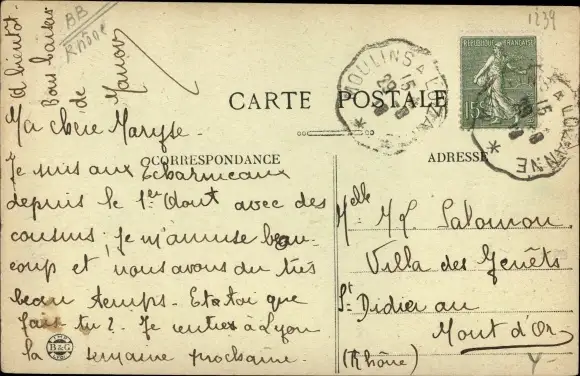 BB
Rhône
1239
A bientôt.
Bons baisers
de
Manon
MOULINS A
15
29
8
RÉPUBLIQUE FRANÇAISE
15
CARTE POSTALE
CORRESPONDANCE
ADRESSE
Ma chère Maryse.
Je suis aux Echarmeaux
depuis le 1er Aout avec des
cousins ; Je m'amuse beau-
coup et nous avons du très
beau temps. Et toi que
fais tu ? Je rentre à Lyon
la semaine prochaine.
B&G
Melle M.L. Salomon
Villa des Genêts
St Didier au
Mont d'Or
(Rhône)